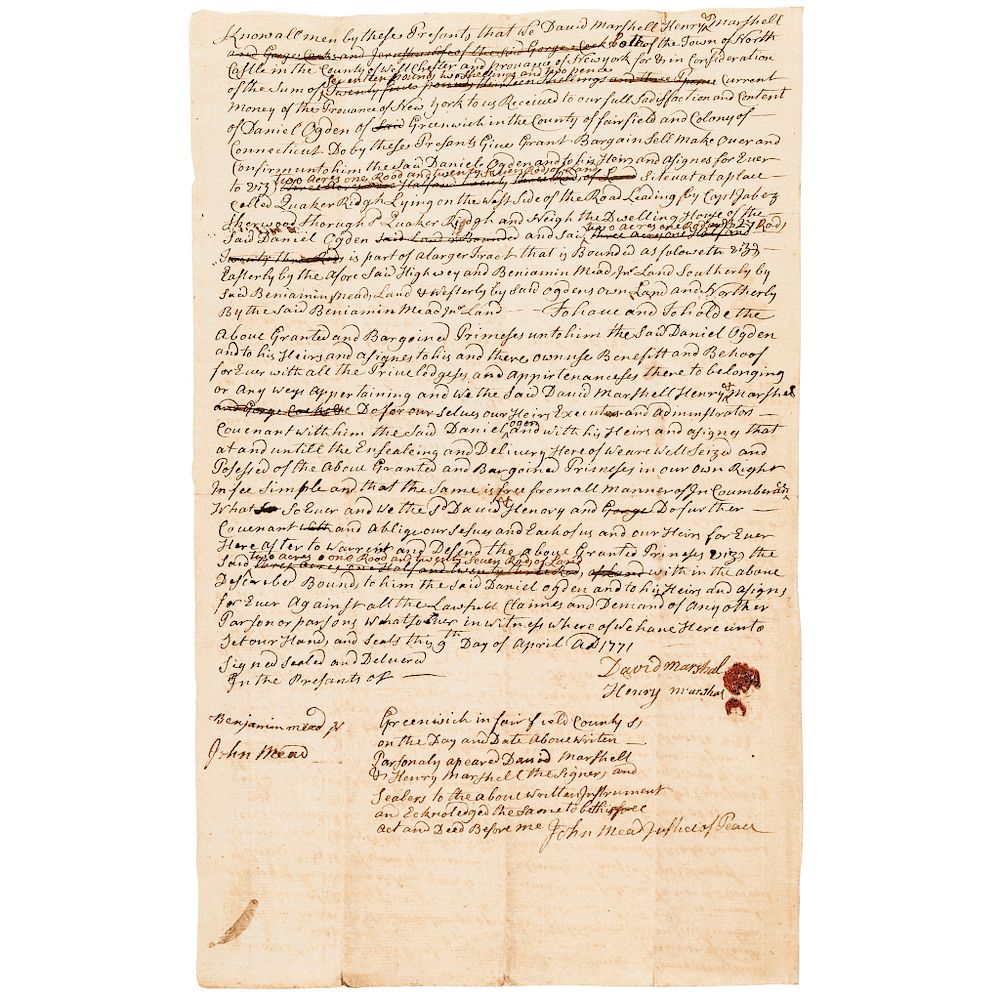 Know all men by these Presants, that we David Marshell Henry & Marshell
and Gorge Cocks and Jerusha wife of the said Gorge Cock both of the Town of North
Castle in the County of Westchester and provance of New york for & in Consideration
seventeen pounds two shillings and two pence
of the Sum of Twenty five pounds Shillings and three Pence Current
Money of the Provance of New York to us Received to our full Sadisfaction and Content
of Daniel Ogden of Said Greenwich in the County of fairfield and Colony of
Connecticut Do by these Presents Give Grant Bargain Sell Make Over and
Confirm unto him the Said Daniel Ogden and to his Heirs and asignes for Ever
two Acres one Rood and twenty Seven Rod of Land
to viz Three Acres one Half and twenty three Rod, of Land Sit­uat at a place
Called Quaker Ridgh Lying on the West Side of the Road Leading by Capt Jabez
Sherwood thorough Quaker Ridgh and Neigh the Dwelling House of the
two acres one Rood & 27 Rod,
Said Daniel Ogden said Land is Bounded and Said three Acres one Half and
Twenty three Rod is part of a Larger Tract that is Bounded as foloweth viz
Easterly by the afore Said Highwey and Beniamin Mead, Jnr Land Southerly by
Said Beniamin Mead, Land & Westerly by Said Ogdens own Land and Northerly
By the Said Beniamin Mead Jnr Land — To have and To holde the
Above Granted and Bargoined Primeses unto him the Said Daniel Ogden
and to his Heirs and asignes to his and there own use Benefitt and Behoof
for Ever with all the Priveledgess and Appirtenanceses there to belonging
or Any weys Appertaining and we the Said David Marshell Henry & Marshel
and Gorge Cocks Do for our Selves our Heirs Executers and adminnstrators —
Covenant with him the Said Daniel ogden and with his Heirs and asignes that
at and untill the Ensealeing and Delivery Here of We are Well Seized and
Posessed of the Above Granted and Bargained Primeses in our Own Right
In fee Simple and that the Same is free from all Manner of In Coumberan
What So Ever and We the Sd David Henory and George Do further —
Covenant with and Ablige our Selves and Each of us and our Heirs for Ever
Here After to Warrent and Defend the above Granted Primeses viz, the
two acres one Rood and twenty Seven Rod, of Land
Said Three Acres one Half and twenty three Rod, of Land with in the above
Described Bound, to him the Said Daniel Ogden and to his Heirs and asigns
for Ever Against all the Lawfull Claimes and Demand of Any other
Parson or parsons Whatso Ever in Witness Where of We have Here unto
Set our Hand, and Seals this 9th Day of April AD 1771
Signed Sealed and Delivered
In the Presants of —
David Marshal
Henry Marshal
Benjamin mead Jr
John Mead
Greenwich in fairfield County Ss
on the Day and Date Above Writen —
Parsonaly apeared David Marshell
& Henry Marshell the Signer, and
Sealers to the above Written Instrument
an Ecknoledged the Same to be this free
Act and Deed Before me John Mead Justice of Peace